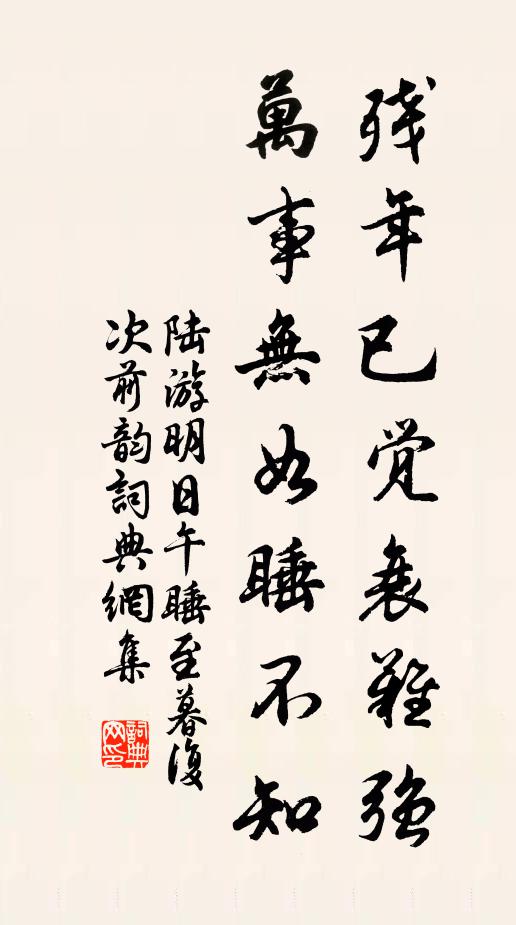 残年已觉衰難强
萬事無如睡不知
陆游明日午睡至暮復
次前韵詞典網集
詞典
网印